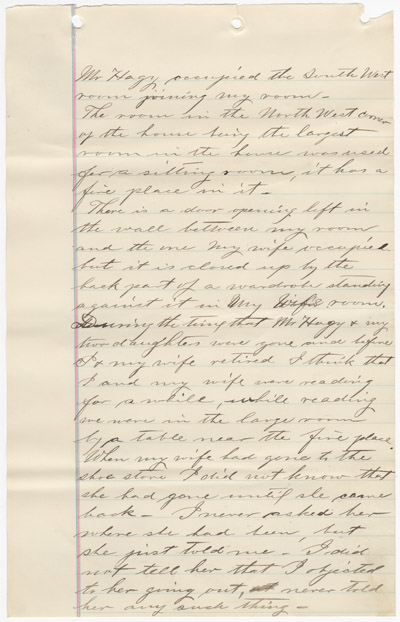 Mr Hagy occupied the South West
room joining my room -
The room in the North West corner
of the house being the largest
room in the house was used
for a sitting room, it has a
fire place in it -
There is a door opening left in
the wall between my room
and the one my wife occupied
but it is closed up by the
back part of a wardrobe standing
against it in My Wifes room.
During the time that Mr Hagy & my
two daughters were gone and before
I & my wife retired I think that
I and my wife were reading
for a while, while reading
we were in the large room
by a table near the fire place.
When my wife had gone to the
shoe store I did not know that
she had gone until she came
back - I never asked her
where she had been, but
she just told me - I did
not tell her that I objected
to her going out, never told
her any such thing -